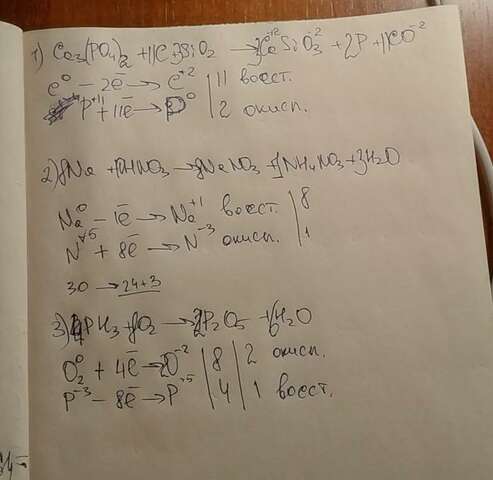 1) Ca₃(PO₄)₂ + 11C + 3SiO₂ → 3Ca⁺²SiO₃⁻² + 2P + 11CO⁻²
C⁰ - 2e̅ → C⁺² | 11 восст.
P⁺¹¹ + 11e̅ → P⁰ | 2 окисл.
2) 8Na + 10HNO₃ → 8NaNO₃ + 1NH₄NO₃ + 3H₂O
Na⁰ - 1e̅ → Na⁺¹ восст. | 8
N⁺⁵ + 8e̅ → N⁻³ окисл. | 1
30 → 24+3
3) 4PH₃ + 8O₂ → 2P₂O₅ + 6H₂O
O₂⁰ + 4e̅ → 2O⁻² | 8 | 2 окисл.
P⁻³ - 8e̅ → P⁺⁵ | 4 | 1 восст.